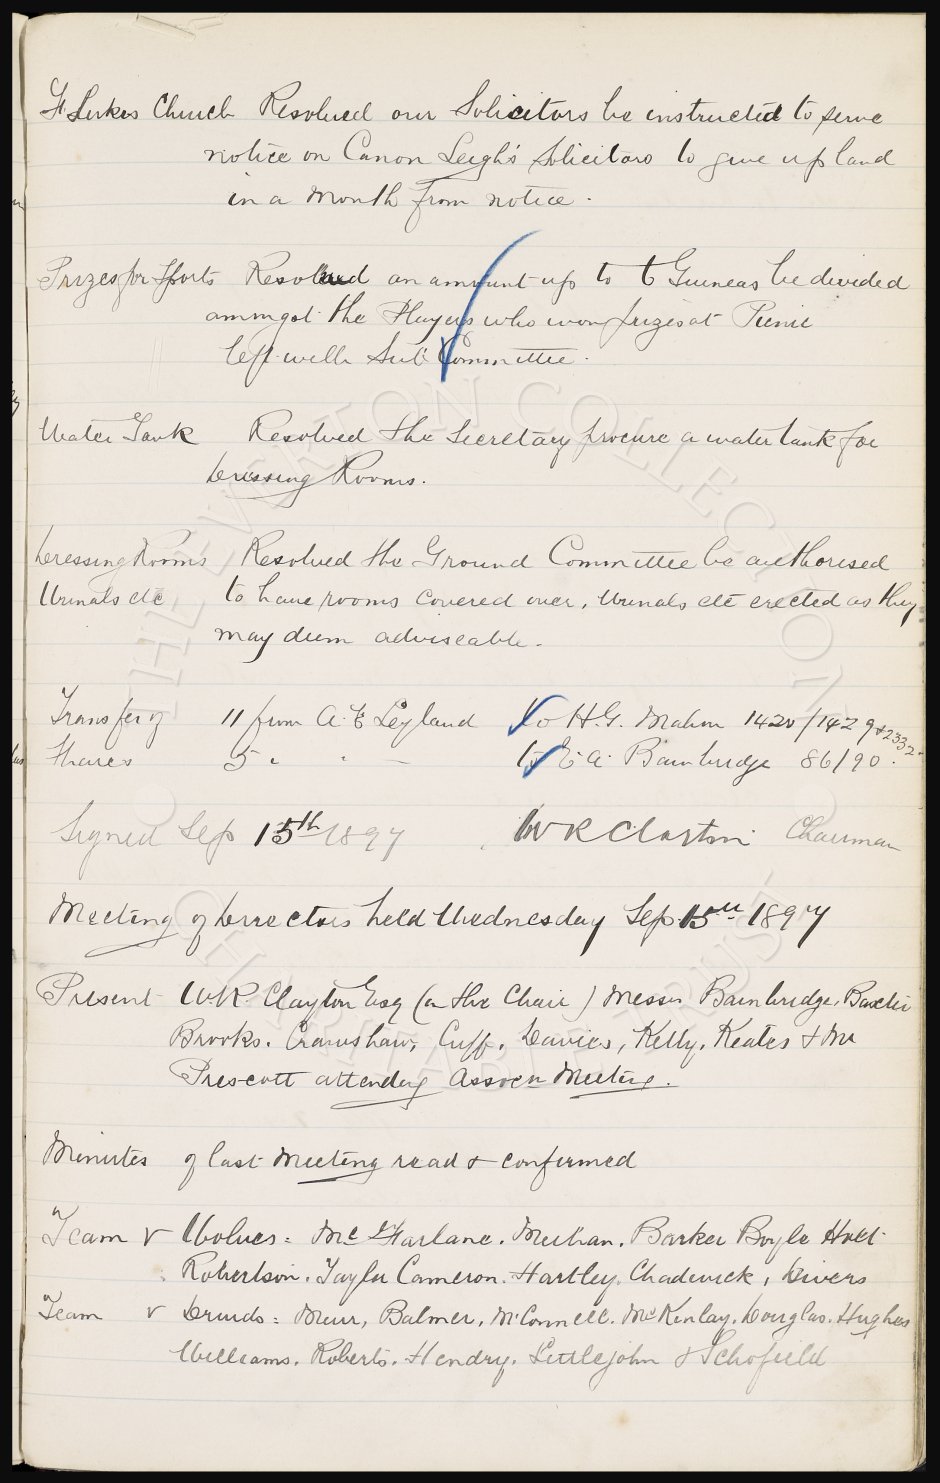 St Lukes Church Resolved our Solicitors be instructed to serve
notice on Canon Leigh's Solicitors to give up land
in a month from notice.
Prizes for Sports Resolved an amount up to 6 Guineas be divided
amongst the Players who won prizes at Picnic
left with Sub Committee.
Water Tank Resolved the Secretary procure a water tank for
Dressing Rooms.
Dressing Rooms Resolved the Ground Committee be authorised
Urinals etc to have rooms covered over, Urinals etc erected as they
may deem adviseable.
Transfer of 11 from A.E Leyland to H.G. Mahon 1420/1429 & 2332
Shares 5 " " — to E.A. Bainbridge 86/90.
Signed Sep 15th 1897 W R Clayton Chairman
Meeting of Directors held Wednesday Sep 15th 1897
Present W.R. Clayton Esq (in the Chair) Messrs Bainbridge, Baxter
Brooks, Crawshaw, Cuff, Davies, Kelly, Keates & Mr
Prescott attending Assocn Meeting.
Minutes of last Meeting read & confirmed
Team v Wolves: McFarlane. Meehan. Barker Boyle Holt
Robertson. Taylor Cameron. Hartley. Chadwick, Divers
Team v Druids: Muir, Balmer, McConnell. McKinlay. Douglas. Hughes
Williams. Roberts. Hendry. Littlejohn & Schofield
THE EVERTON COLLECTION
CHARITABLE TRUST